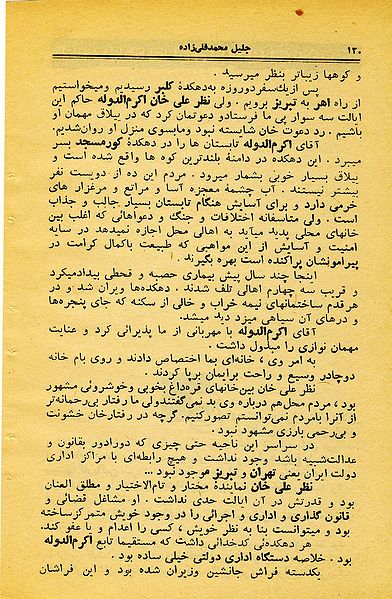 ۱۳۰
جلیل محمدقلی‌زاده
و کوهها زیباتر بنظر میرسید .
پس از یك‌سفر دوروزه به‌دهکدهٔ کلیبر رسیدیم ومیخواستیم
از راه اهر به تبریز برویم . ولی نظر علی خان اکرم‌الدوله حاکم این
ایالت سه سوار پی ما فرستادو دعوتمان کرد که در ییلاق مهمان او
باشیم . رد دعوت خان شایسته نبود ومابسوی منزل او روان‌شدیم.
آقای اکرم‌الدوله تابستان ها را در دهکدهٔ کورمسجد بسر
میبرد . این دهکده در دامنهٔ بلندترین کوه ها واقع شده است و
ییلاق بسیار خوبی بشمار میرود . مردم این ده از دویست نفر
بیشتر نیستند . آب چشمه معجزه آسا و مراتع و مرغزار های
خرمی دارد و برای آسایش هنگام تابستان بسیار جالب و جذاب
است . ولی متاسفانه اختلافات و جنگ و دعواهائی که اغلب بین
خانهای محلی پدید میآید به اهالی محل اجازه نمیدهد در سایه
امنیت و آسایش از این مواهبی که طبیعت باکمال کرامت در
پیرامونشان پراکنده است بهره بگیرند .
اینجا چند سال پیش بیماری حصبه و قحطی بیدادمیکرد
و قریب سه چهارم اهالی تلف شدند . دهکده‌ها ویران شد و در
هرقدم ساختمانهای نیمه خراب و خالی از سکنه که جای پنجره‌ها
و درهای آن سیاهی میزد دیده میشد.
آقای اکرم‌الدوله با مهربانی از ما پذیرائی کرد و عنایت
مهمان نوازی را مبذول داشت .
به امر وی ، خانه‌ای بما اختصاص دادند و روی بام خانه
دوچادر وسیع و راحت برایمان برپا کردند .
نظر علی خان بین‌خانهای قره‌داغ بخوبی وخوشروئی مشهور
بود ، مردم محل‌هم درباره وی بد نمی‌گفتندولی ما رفتار بی‌رحمانه‌تر
از آنرا بامردم نمی‌توانستم تصورکنیم. گرچه در رفتارخان خشونت
و بی‌رحمی بارزی مشهود نبود .
در سراسر این ناحیه حتی چیزی که دورادور بقانون و
عدالت‌شبیه باشد وجود نداشت و هیچ رابطه‌ای با مراکز اداری
دولت ایران یعنی تهران و تبریز موجود نبود ...
نظر علی خان نمایندهٔ مختار و تام‌الاختیار و مطلق العنان
بود و قدرتش در آن ایالت حدی نداشت . او مشاغل قضائی و
قانون گذاری و اداری و اجرائی را در وجود خویش متمرکزساخته
بود و میتوانست بنا به نظر خویش ، کسی را اعدام و یا عفو کند.
هر دهکده‌ئی کدخدائی داشت که مستقیما تابع اکرم‌الدوله
بود . خلاصه دستگاه اداری دولتی خیلی ساده بود .
یکدسته فراش جانشین وزیران شده بود و این فراشان